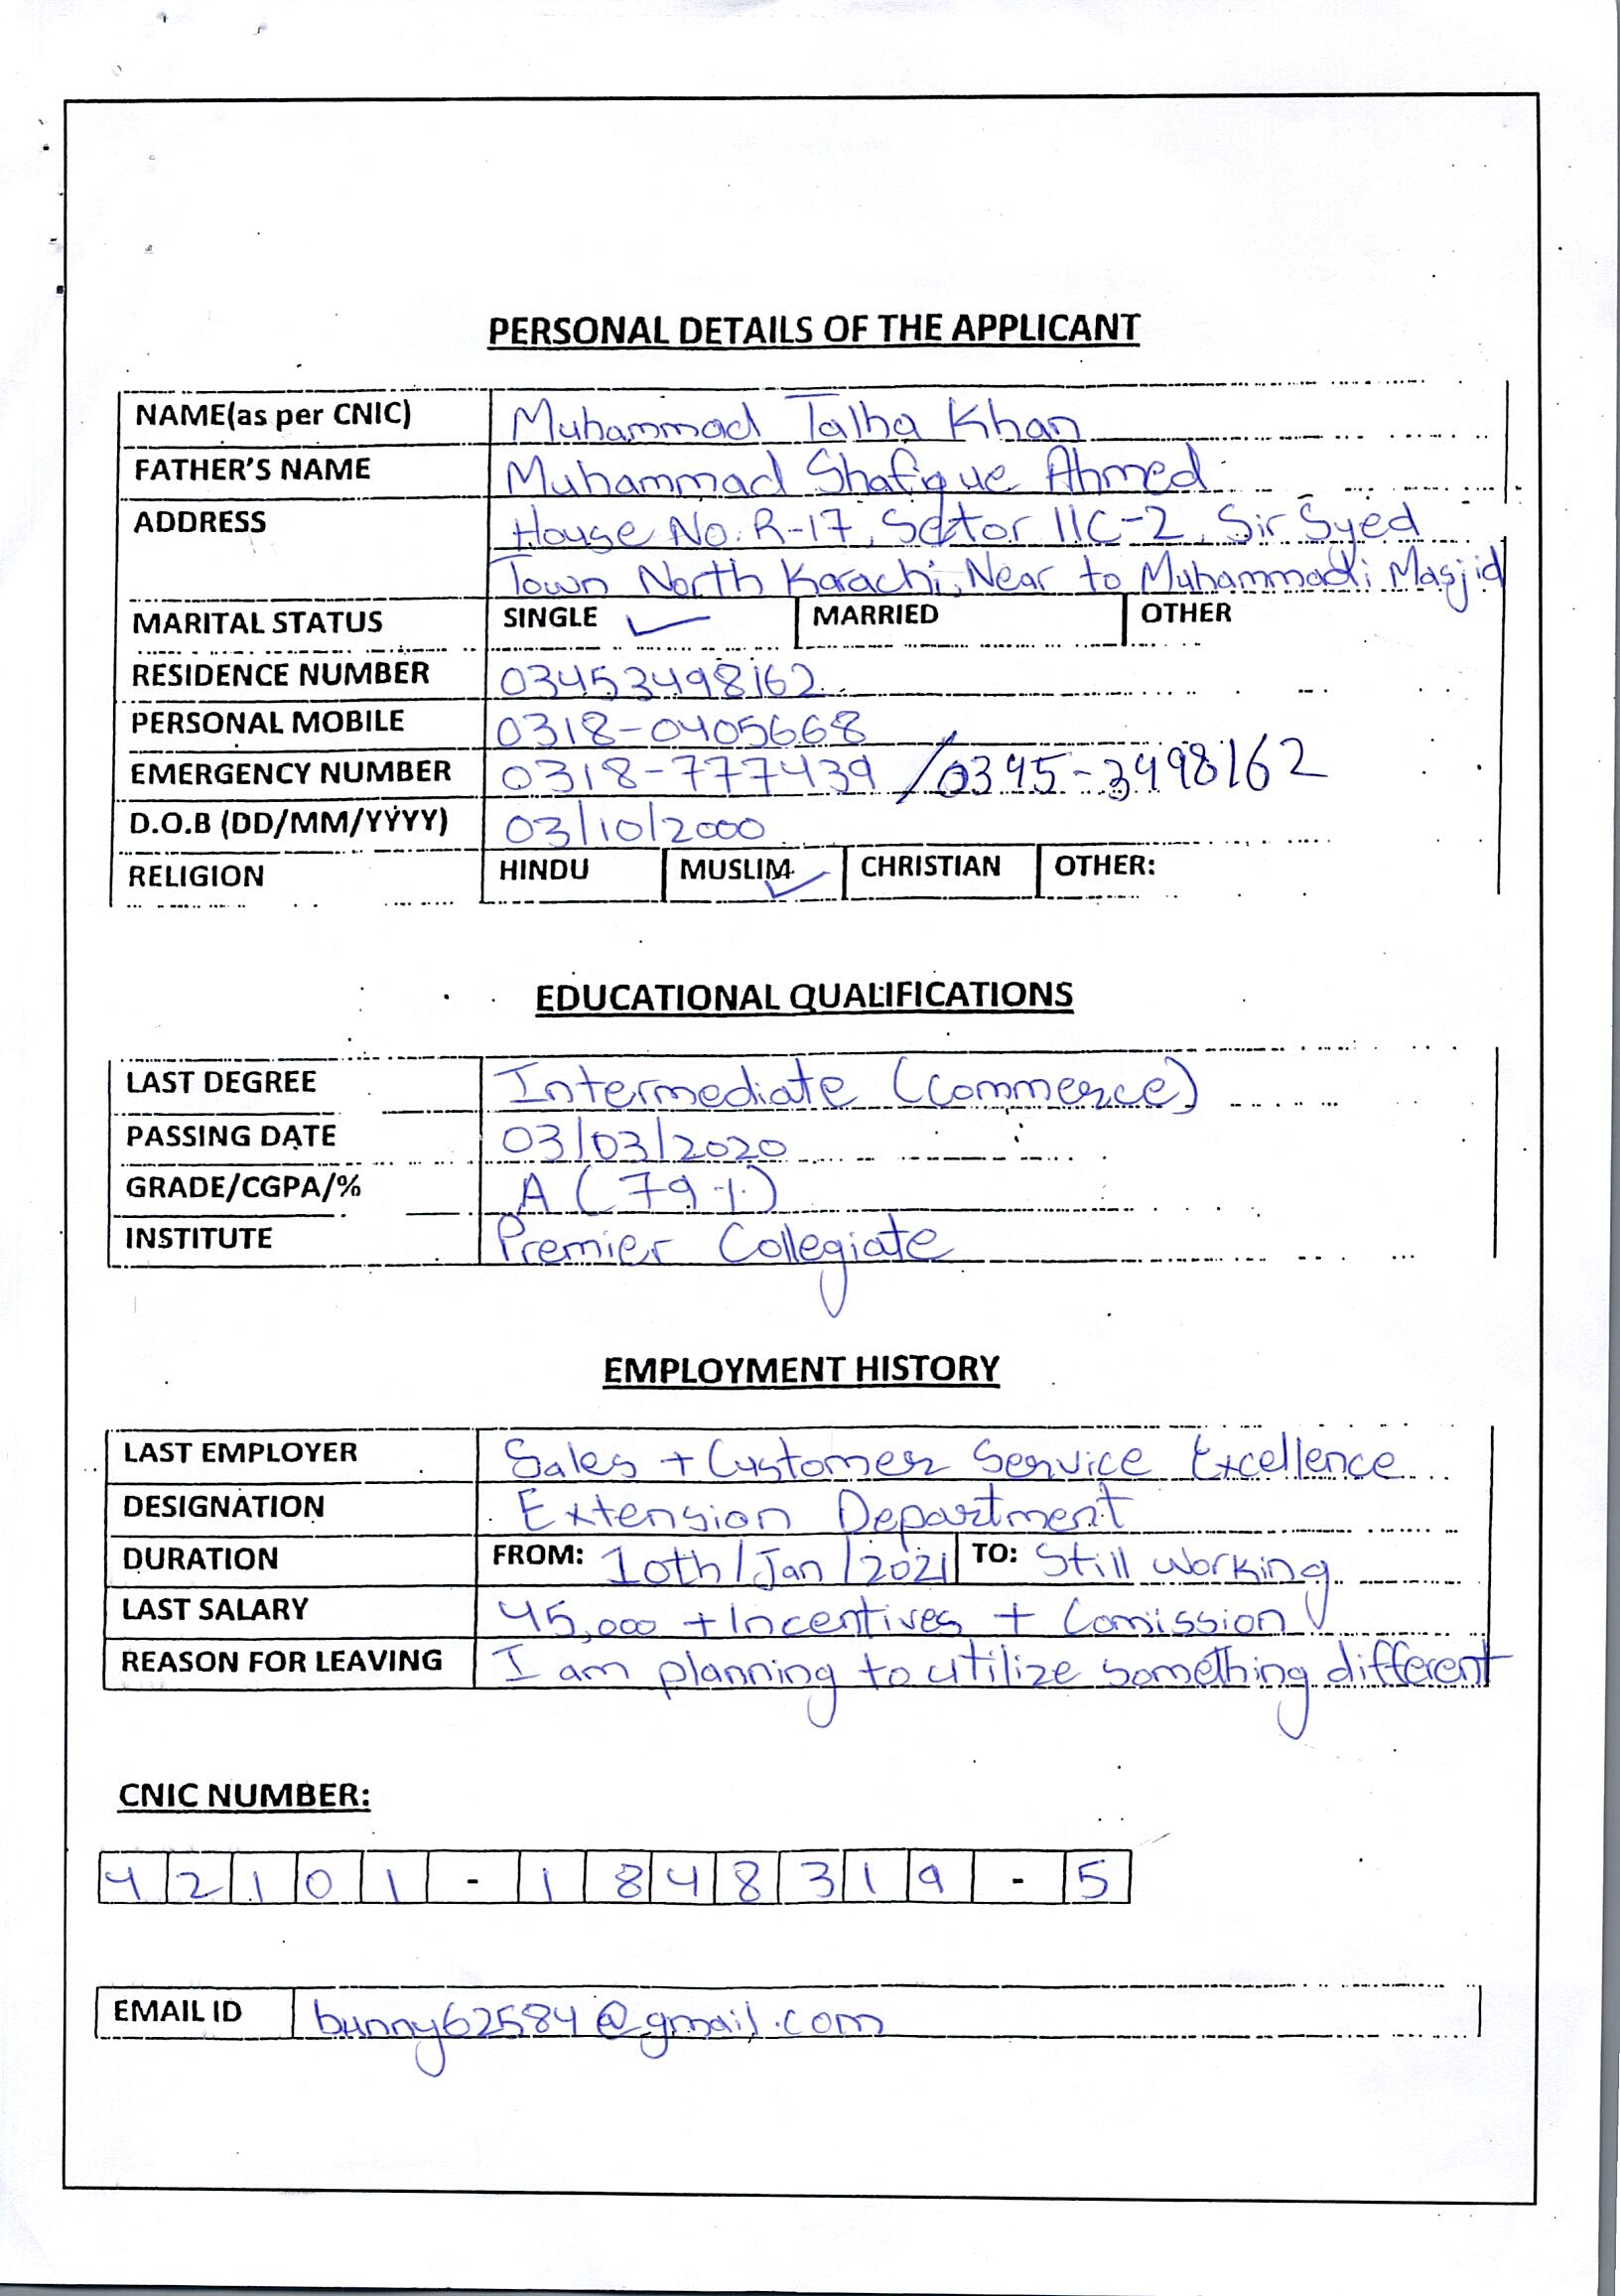 PERSONAL DETAILS OF THE APPLICANT
NAME(as per CNIC) Muhammad Talha Khan
FATHER'S NAME Muhammad Shafique Ahmed
ADDRESS House No. R-17, Sector 11C-2, Sir Syed
Town North Karachi, Near to Muhammadi Masjid
MARITAL STATUS SINGLE ✓ MARRIED OTHER
RESIDENCE NUMBER 03453498162
PERSONAL MOBILE 0318-0405668
EMERGENCY NUMBER 0318-777439 / 0345-3498162
D.O.B (DD/MM/YYYY) 03/10/2000
RELIGION HINDU MUSLIM ✓ CHRISTIAN OTHER:
EDUCATIONAL QUALIFICATIONS
LAST DEGREE Intermediate (Commerce)
PASSING DATE 03/03/2020
GRADE/CGPA/% A (79%)
INSTITUTE Premier Collegiate
EMPLOYMENT HISTORY
LAST EMPLOYER Sales + Customer Service Excellence
DESIGNATION Extension Department
DURATION FROM: 10th/Jan/2021 TO: Still working
LAST SALARY 45,000 + Incentives + Comission
REASON FOR LEAVING I am planning to utilize something different
CNIC NUMBER:
42101-1848319-5
EMAIL ID bunny62584@gmail.com